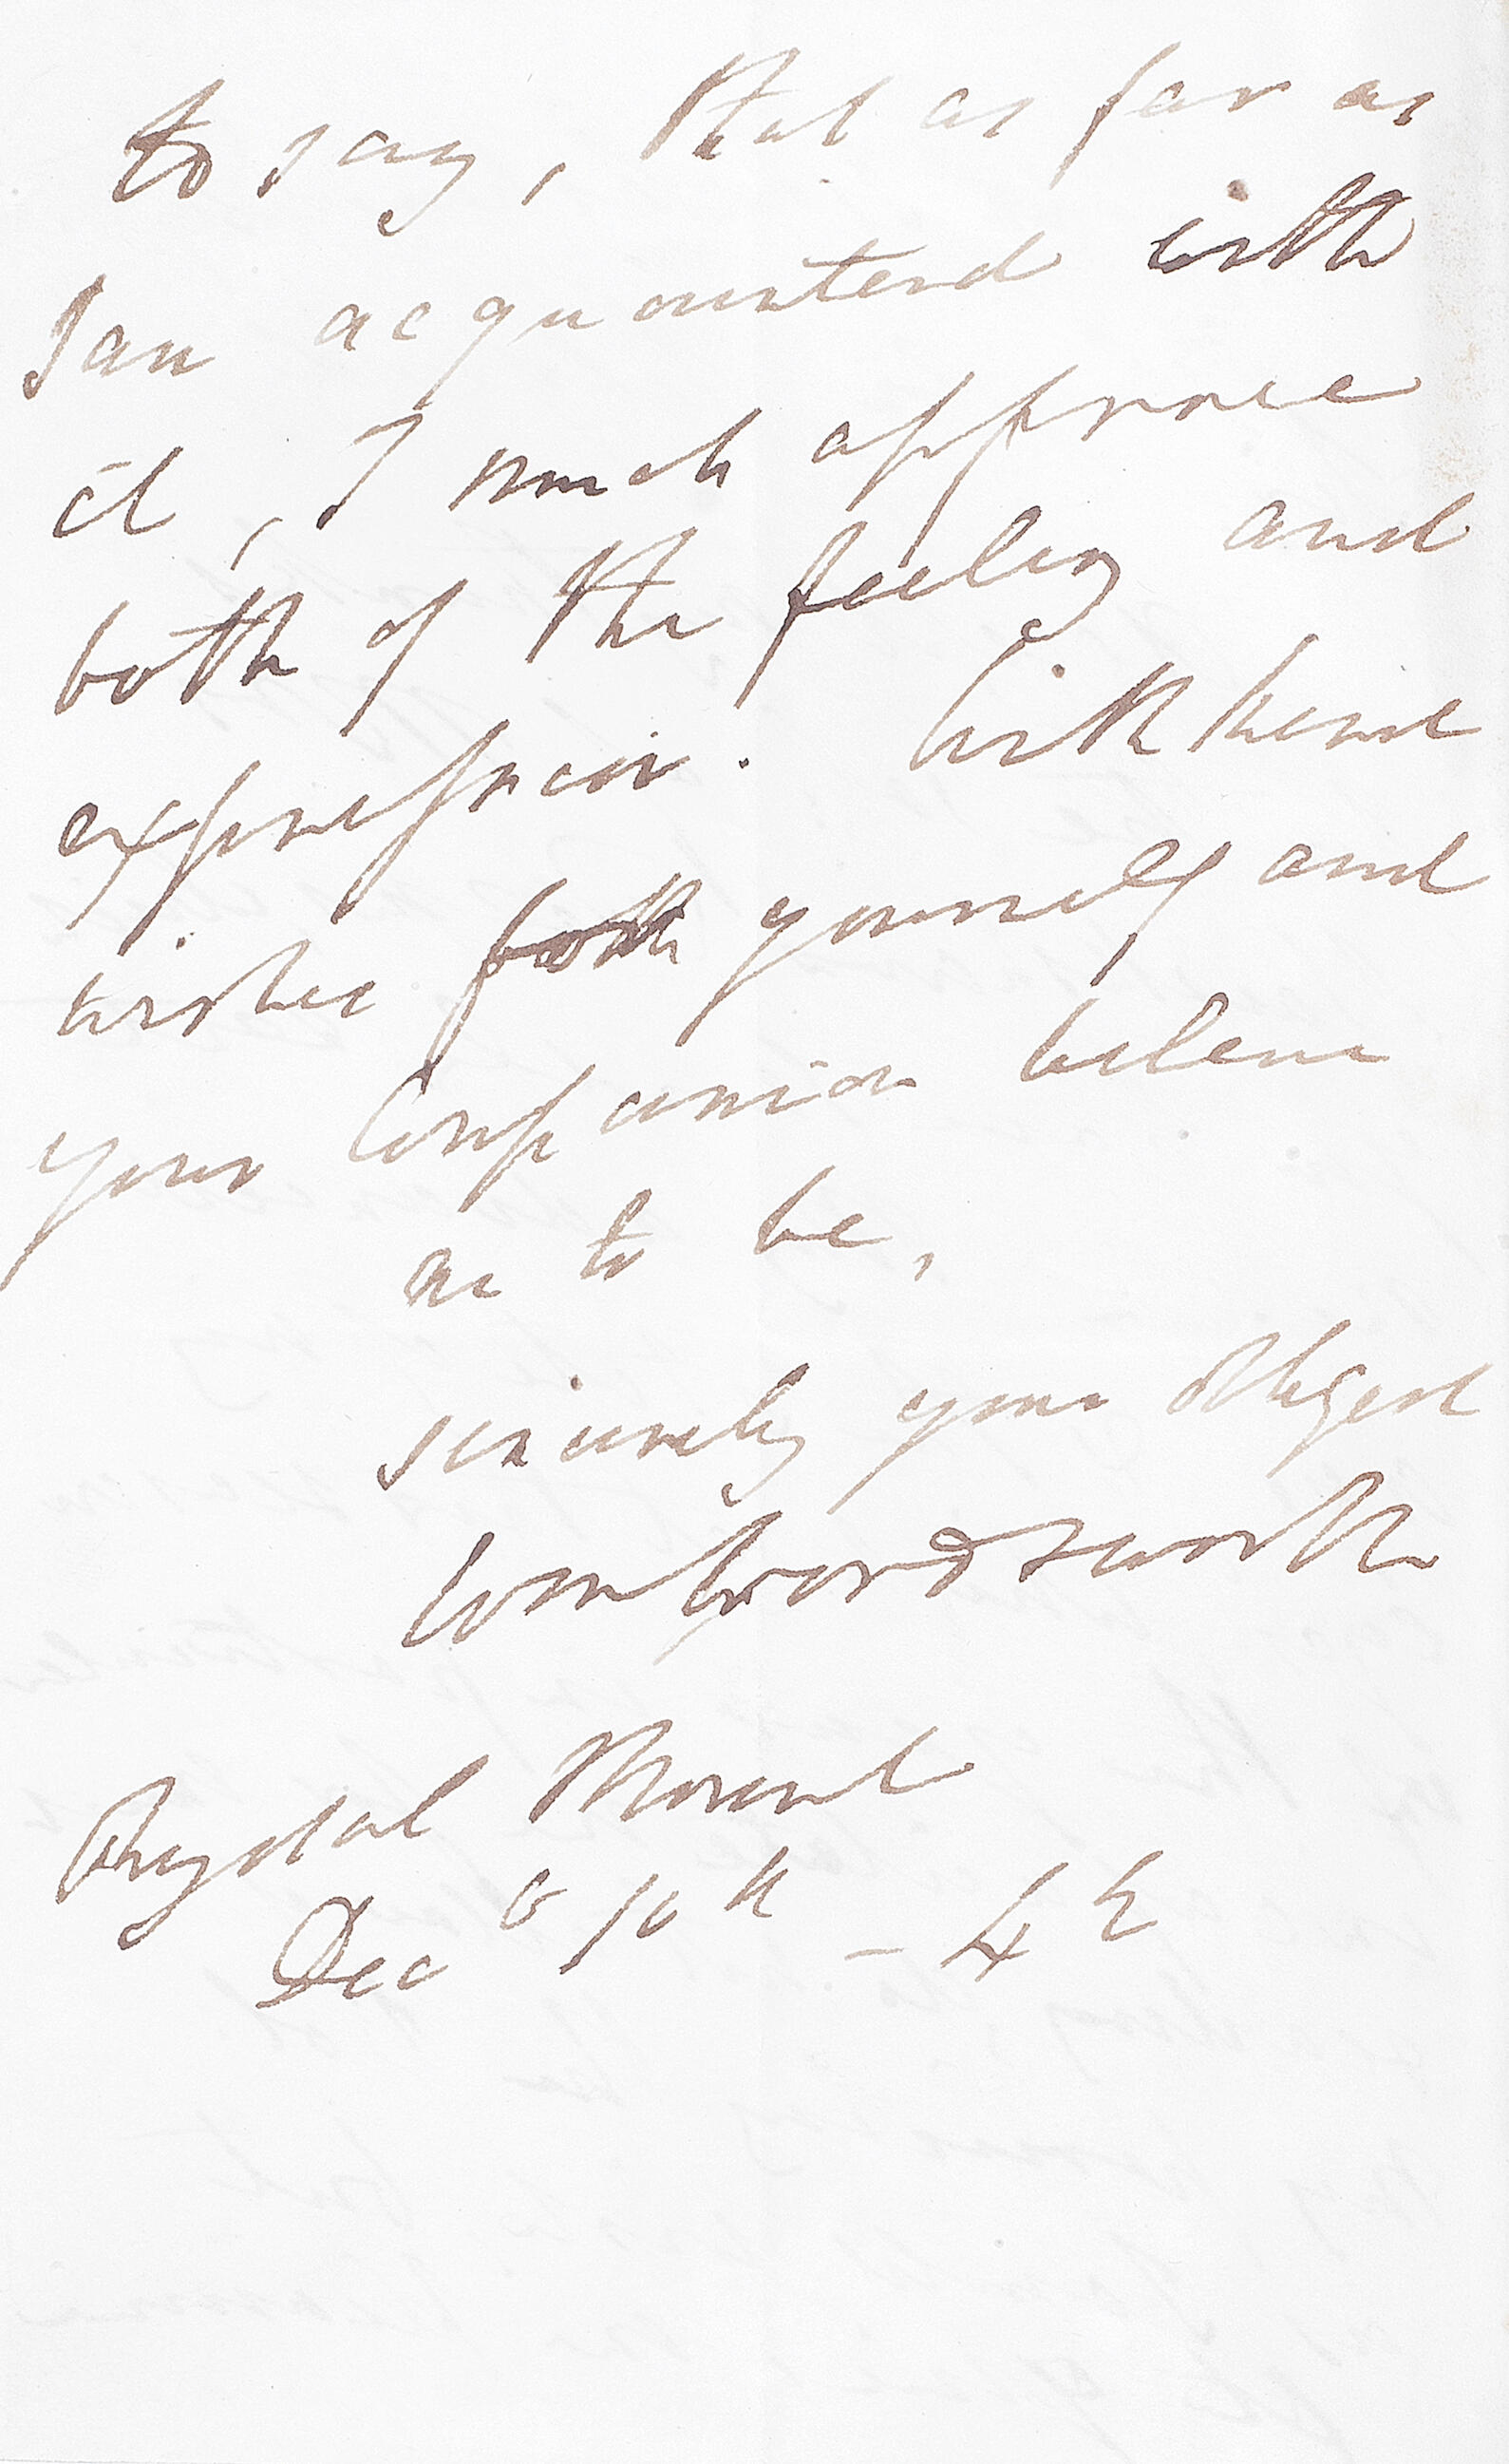 to say, that as far as
I am acquainted with
it, I much approve
both of the feeling and
expression. With kind
wishes both yourself and
your Companion believe
me to be,
sincerely your obliged
Wm Wordsworth
Rydal Mount
Decr 10th – 42